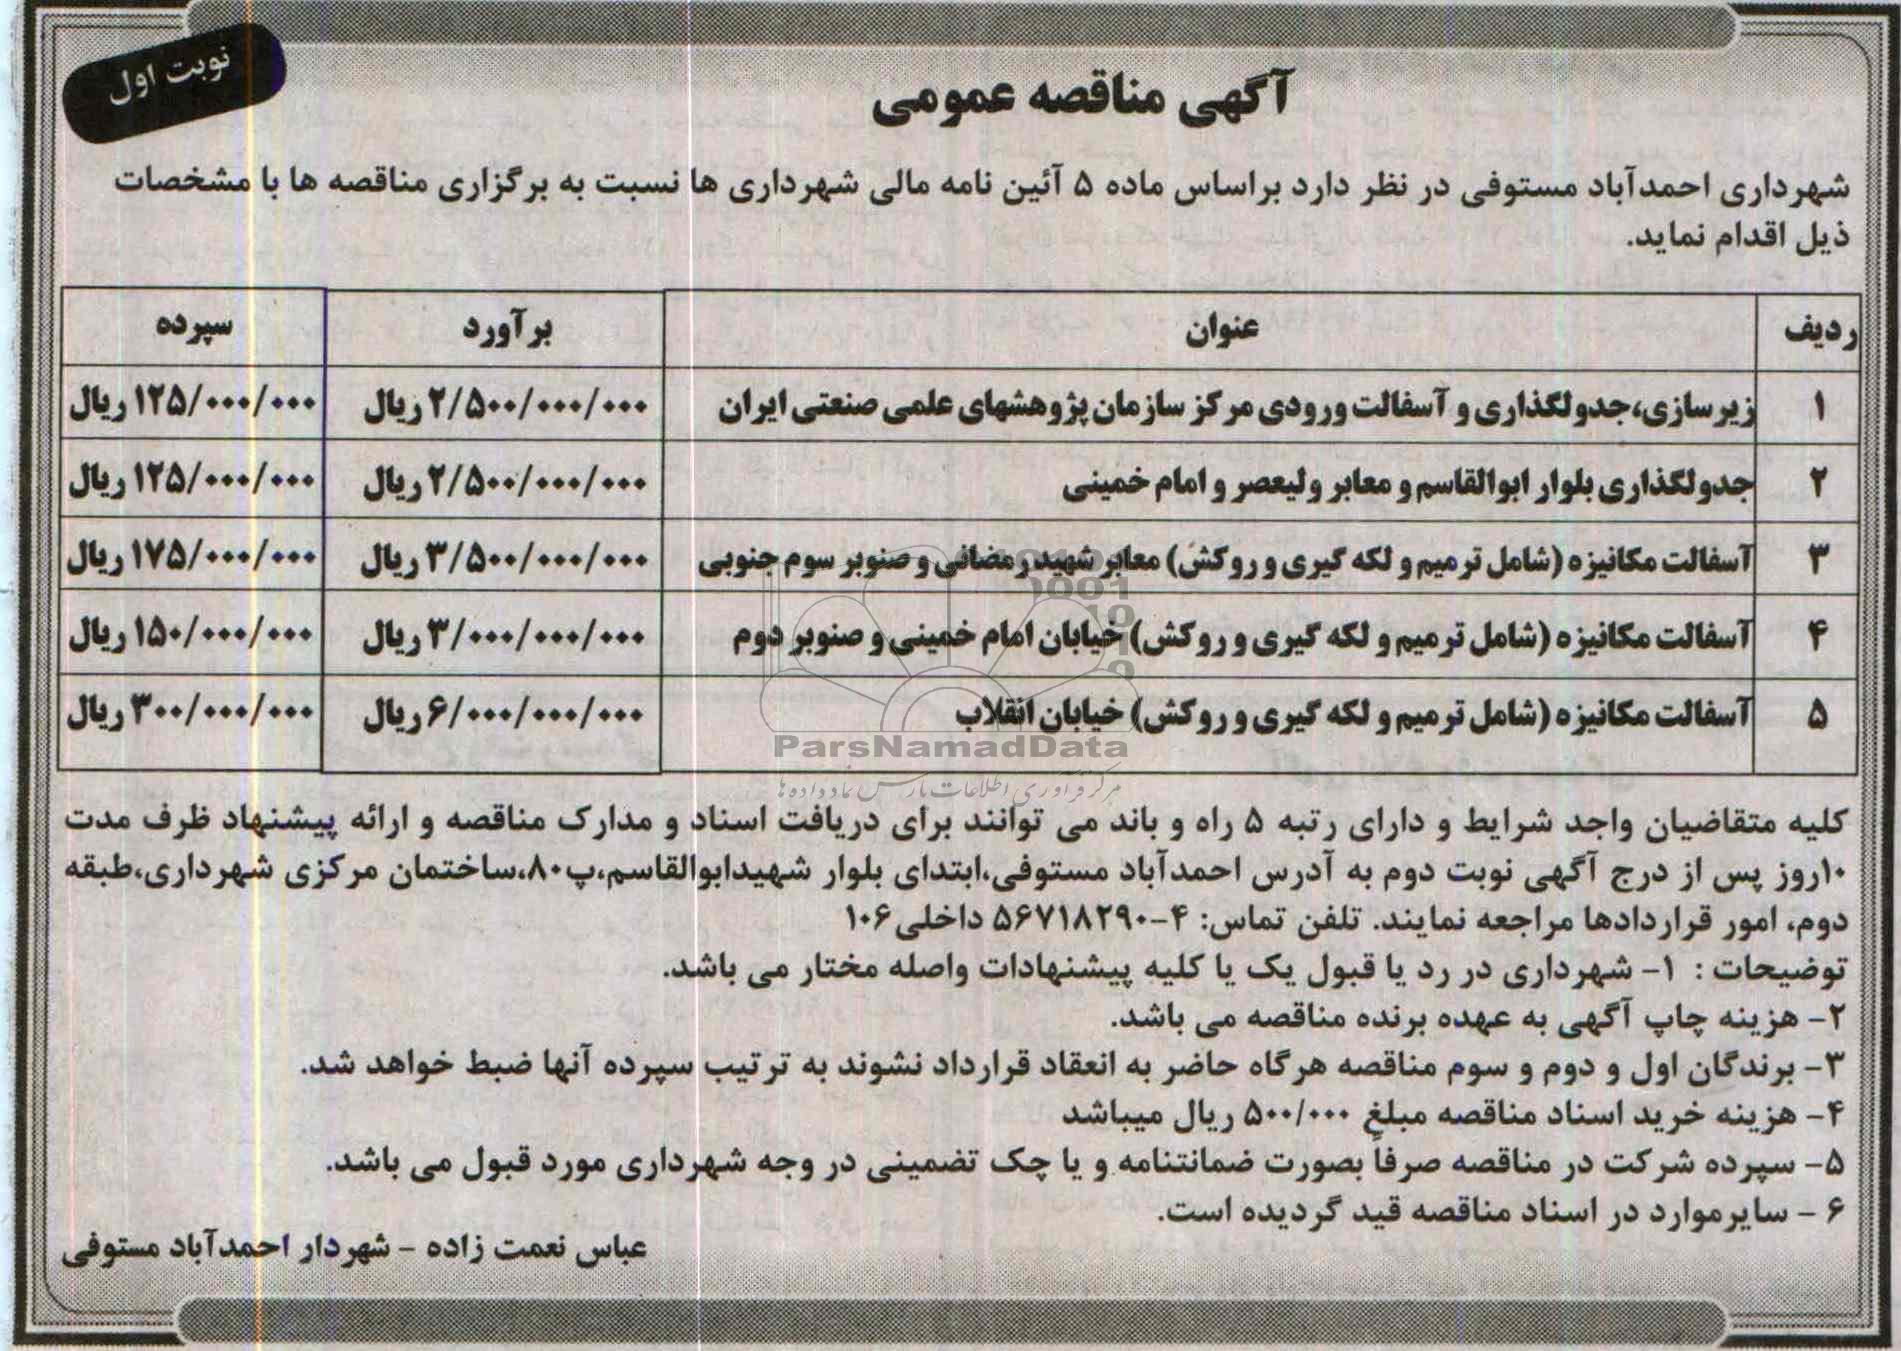 نوبت اول
آگهی مناقصه عمومی
شهرداری احمدآباد مستوفی در نظر دارد براساس ماده ۵ آئین نامه مالی شهرداری ها نسبت به برگزاری مناقصه ها با مشخصات
ذیل اقدام نماید.
ردیف عنوان برآورد سپرده
۱ زیرسازی،جدولگذاری و آسفالت ورودی مرکز سازمان پژوهشهای علمی صنعتی ایران ۲/۵۰۰/۰۰۰/۰۰۰ ریال ۱۲۵/۰۰۰/۰۰۰ ریال
۲ جدولگذاری بلوار ابوالقاسم و معابر ولیعصر و امام خمینی ۲/۵۰۰/۰۰۰/۰۰۰ ریال ۱۲۵/۰۰۰/۰۰۰ ریال
۳ آسفالت مکانیزه (شامل ترمیم و لکه گیری و روکش) معابر شهید رمضانی و صنوبر سوم جنوبی ۳/۵۰۰/۰۰۰/۰۰۰ ریال ۱۷۵/۰۰۰/۰۰۰ ریال
۴ آسفالت مکانیزه (شامل ترمیم و لکه گیری و روکش) خیابان امام خمینی و صنوبر دوم ۳/۰۰۰/۰۰۰/۰۰۰ ریال ۱۵۰/۰۰۰/۰۰۰ ریال
۵ آسفالت مکانیزه (شامل ترمیم و لکه گیری و روکش) خیابان انقلاب ۶/۰۰۰/۰۰۰/۰۰۰ ریال ۳۰۰/۰۰۰/۰۰۰ ریال
ParsNamadData
مرکز فرآوری اطلاعات پارس نماد داده ها
کلیه متقاضیان واجد شرایط و دارای رتبه ۵ راه و باند می توانند برای دریافت اسناد و مدارک مناقصه و ارائه پیشنهاد ظرف مدت
۱۰روز پس از درج آگهی نوبت دوم به آدرس احمدآباد مستوفی،ابتدای بلوار شهیدابوالقاسم،پ۸۰،ساختمان مرکزی شهرداری،طبقه
دوم، امور قراردادها مراجعه نمایند. تلفن تماس: ۴-۵۶۷۱۸۲۹۰ داخلی ۱۰۶
توضیحات : ۱- شهرداری در رد یا قبول یک یا کلیه پیشنهادات واصله مختار می باشد.
۲- هزینه چاپ آگهی به عهده برنده مناقصه می باشد.
۳- برندگان اول و دوم و سوم مناقصه هرگاه حاضر به انعقاد قرارداد نشوند به ترتیب سپرده آنها ضبط خواهد شد.
۴- هزینه خرید اسناد مناقصه مبلغ ۵۰۰/۰۰۰ ریال میباشد
۵- سپرده شرکت در مناقصه صرفاً بصورت ضمانتنامه و یا چک تضمینی در وجه شهرداری مورد قبول می باشد.
۶ - سایرموارد در اسناد مناقصه قید گردیده است.
عباس نعمت زاده - شهردار احمدآباد مستوفی